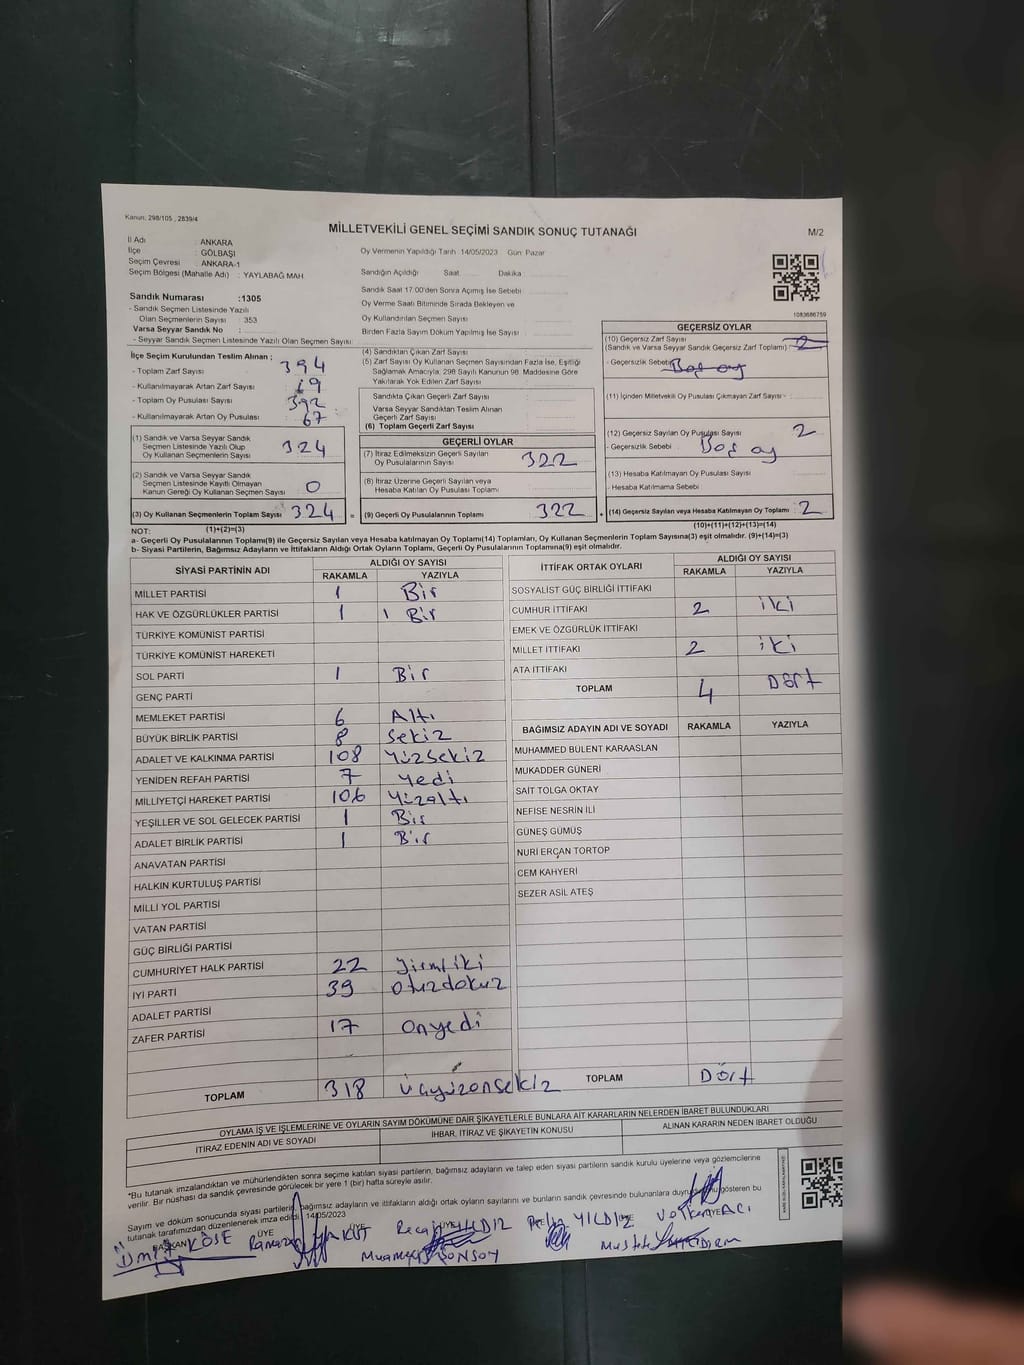 Kanun: 298/105 , 2839/4
MİLLETVEKİLİ GENEL SEÇİMİ SANDIK SONUÇ TUTANAĞI
M/2
İl Adı : ANKARA
İlçe : GÖLBAŞI
Seçim Çevresi : ANKARA-1
Seçim Bölgesi (Mahalle Adı) : YAYLABAĞ MAH.
Sandık Numarası :1305
- Sandık Seçmen Listesinde Yazılı
Olan Seçmenlerin Sayısı : 353
Varsa Seyyar Sandık No :
- Seyyar Sandık Seçmen Listesinde Yazılı Olan Seçmen Sayısı:
Oy Vermenin Yapıldığı Tarih :14/05/2023 Gün: Pazar
Sandığın Açıldığı Saat: Dakika:
Sandık Saat 17.00'den Sonra Açılmış İse Sebebi :
Oy Verme Saati Bitiminde Sırada Bekleyen ve
Oy Kullandırılan Seçmen Sayısı :
Birden Fazla Sayım Döküm Yapılmış İse Sayısı :
1083686759
İlçe Seçim Kurulundan Teslim Alınan ;
- Toplam Zarf Sayısı : 394
- Kullanılmayarak Artan Zarf Sayısı : 69
- Toplam Oy Pusulası Sayısı : 392
- Kullanılmayarak Artan Oy Pusulası : 67
(1) Sandık ve Varsa Seyyar Sandık
Seçmen Listesinde Yazılı Olup
Oy Kullanan Seçmenlerin Sayısı : 324
(2) Sandık ve Varsa Seyyar Sandık
Seçmen Listesinde Kayıtlı Olmayan
Kanun Gereği Oy Kullanan Seçmen Sayısı : 0
(3) Oy Kullanan Seçmenlerin Toplam Sayısı : 324 =
(4) Sandıktan Çıkan Zarf Sayısı :
(5) Zarf Sayısı Oy Kullanan Seçmen Sayısından Fazla İse, Eşitliği
Sağlamak Amacıyla, 298 Sayılı Kanunun 98. Maddesine Göre
Yakılarak Yok Edilen Zarf Sayısı :
Sandıkta Çıkan Geçerli Zarf Sayısı :
Varsa Seyyar Sandıktan Teslim Alınan
Geçerli Zarf Sayısı :
(6) Toplam Geçerli Zarf Sayısı :
GEÇERLİ OYLAR
(7) İtiraz Edilmeksizin Geçerli Sayılan
Oy Pusulalarının Sayısı : 322
(8) İtiraz Üzerine Geçerli Sayılan veya
Hesaba Katılan Oy Pusulası Toplamı :
(9) Geçerli Oy Pusulalarının Toplamı : 322 +
GEÇERSİZ OYLAR
(10) Geçersiz Zarf Sayısı
(Sandık ve Varsa Seyyar Sandık Geçersiz Zarf Toplamı) : 2
- Geçersizlik Sebebi : Boş oy
(11) İçinden Milletvekili Oy Pusulası Çıkmayan Zarf Sayısı :
(12) Geçersiz Sayılan Oy Pusulası Sayısı : 2
- Geçersizlik Sebebi : Boş oy
(13) Hesaba Katılmayan Oy Pusulası Sayısı :
- Hesaba Katılmama Sebebi :
(14) Geçersiz Sayılan veya Hesaba Katılmayan Oy Toplamı : 2
(10)+(11)+(12)+(13)=(14)
NOT: (1)+(2)=(3)
a- Geçerli Oy Pusulalarının Toplamı(9) ile Geçersiz Sayılan veya Hesaba katılmayan Oy Toplamı(14) Toplamları, Oy Kullanan Seçmenlerin Toplam Sayısına(3) eşit olmalıdır. (9)+(14)=(3)
b- Siyasi Partilerin, Bağımsız Adayların ve İttifakların Aldığı Ortak Oyların Toplamı, Geçerli Oy Pusulalarının Toplamına(9) eşit olmalıdır.
SİYASİ PARTİNİN ADI ALDIĞI OY SAYISI
RAKAMLA YAZIYLA
MİLLET PARTİSİ 1 Bir
HAK VE ÖZGÜRLÜKLER PARTİSİ 1 Bir
TÜRKİYE KOMÜNİST PARTİSİ
TÜRKİYE KOMÜNİST HAREKETİ
SOL PARTİ 1 Bir
GENÇ PARTİ
MEMLEKET PARTİSİ 6 Altı
BÜYÜK BİRLİK PARTİSİ 8 Sekiz
ADALET VE KALKINMA PARTİSİ 108 Yüzsekiz
YENİDEN REFAH PARTİSİ 7 Yedi
MİLLİYETÇİ HAREKET PARTİSİ 106 Yüzaltı
YEŞİLLER VE SOL GELECEK PARTİSİ 1 Bir
ADALET BİRLİK PARTİSİ 1 Bir
ANAVATAN PARTİSİ
HALKIN KURTULUŞ PARTİSİ
MİLLİ YOL PARTİSİ
VATAN PARTİSİ
GÜÇ BİRLİĞİ PARTİSİ
CUMHURİYET HALK PARTİSİ 22 Yirmiiki
İYİ PARTİ 39 Otuzdokuz
ADALET PARTİSİ
ZAFER PARTİSİ 17 Onyedi
TOPLAM 318 Üçyüzonsekiz
İTTİFAK ORTAK OYLARI ALDIĞI OY SAYISI
RAKAMLA YAZIYLA
SOSYALİST GÜÇ BİRLİĞİ İTTİFAKI
CUMHUR İTTİFAKI 2 iki
EMEK VE ÖZGÜRLÜK İTTİFAKI
MİLLET İTTİFAKI 2 iki
ATA İTTİFAKI
TOPLAM 4 Dört
BAĞIMSIZ ADAYIN ADI VE SOYADI RAKAMLA YAZIYLA
MUHAMMED BÜLENT KARAASLAN
MUKADDER GÜNERİ
SAİT TOLGA OKTAY
NEFİSE NESRİN İLİ
GÜNEŞ GÜMÜŞ
NURİ ERCAN TORTOP
CEM KAHYERİ
SEZER ASİL ATEŞ
TOPLAM Dört
OYLAMA İŞ VE İŞLEMLERİNE VE OYLARIN SAYIM DÖKÜMÜNE DAİR ŞİKAYETLERLE BUNLARA AİT KARARLARIN NELERDEN İBARET BULUNDUKLARI
İTİRAZ EDENİN ADI VE SOYADI İHBAR, İTİRAZ VE ŞİKAYETİN KONUSU ALINAN KARARIN NEDEN İBARET OLDUĞU
*Bu tutanak imzalandıktan ve mühürlendikten sonra seçime katılan siyasi partilerin, bağımsız adayların ve talep eden siyasi partilerin sandık kurulu üyelerine veya gözlemcilerine
verilir. Bir nüshası da sandık çevresinde görülecek bir yere 1 (bir) hafta süreyle asılır.
Sayım ve döküm sonucunda siyasi partilerin, bağımsız adayların ve ittifakların aldığı ortak oyların sayılarını ve bunların sandık çevresinde bulunanlara gösteren bu
tutanak tarafımızdan düzenlenerek imza edildi. 14/05/2023
BAŞKAN ÜYE ÜYE ÜYE
KÖSE YAKUT YILDIZ YILDIZ Volkan AVCI
SONSOY